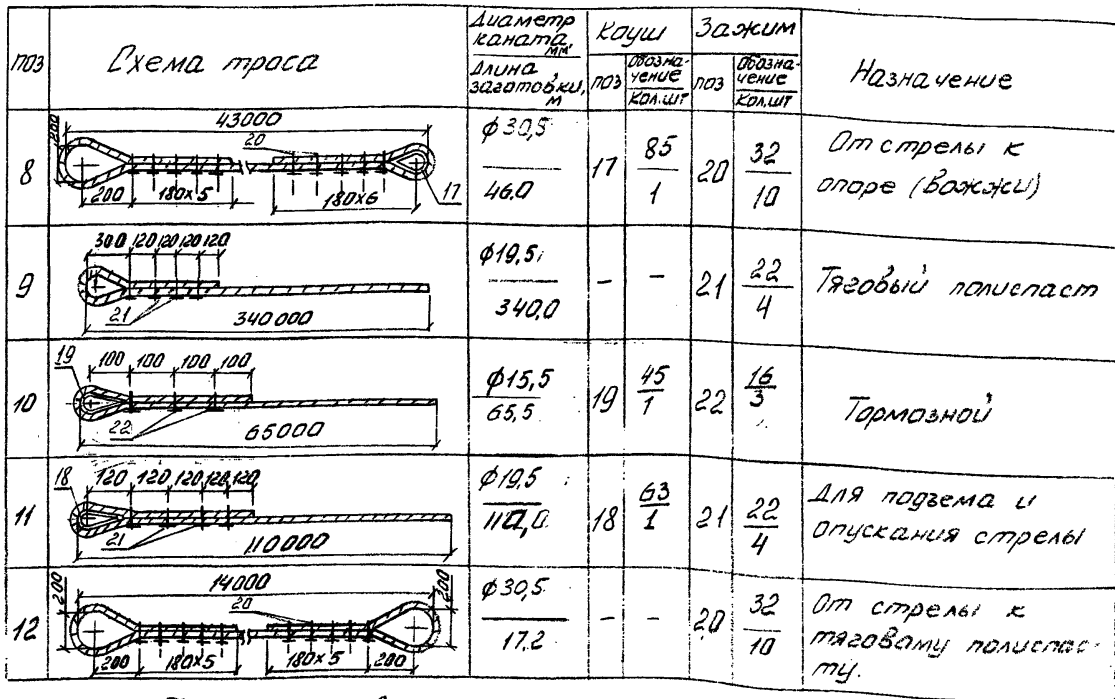 поз
Схема троса
Диаметр каната, мм
Длина заготовки, м
Коуш
поз
Обозначение
Кол.шт
Зажим
поз
Обозначение
Кол.шт
Назначение
8
43000
200
20
200
180х5
180х6
17
ф30,5
46.0
17
85
1
20
32
10
От стрелы к
опоре (вожжи)
9
300 120 120 120 120
21
340 000
ф19,5
340,0
-
-
21
22
4
Тяговый полиспаст
10
19
100 100 100 100
22
65000
ф15,5
65,5
19
45
1
22
16
3
Тормозной
11
18
120 120 120 120 120
21
110000
ф19,5
110,0
18
63
1
21
22
4
Для подъема и
опускания стрелы
12
14000
200
200
20
200
180х5
180х5
200
ф30,5
17.2
-
-
20
32
10
От стрелы к
тяговому полиспас-
ту.